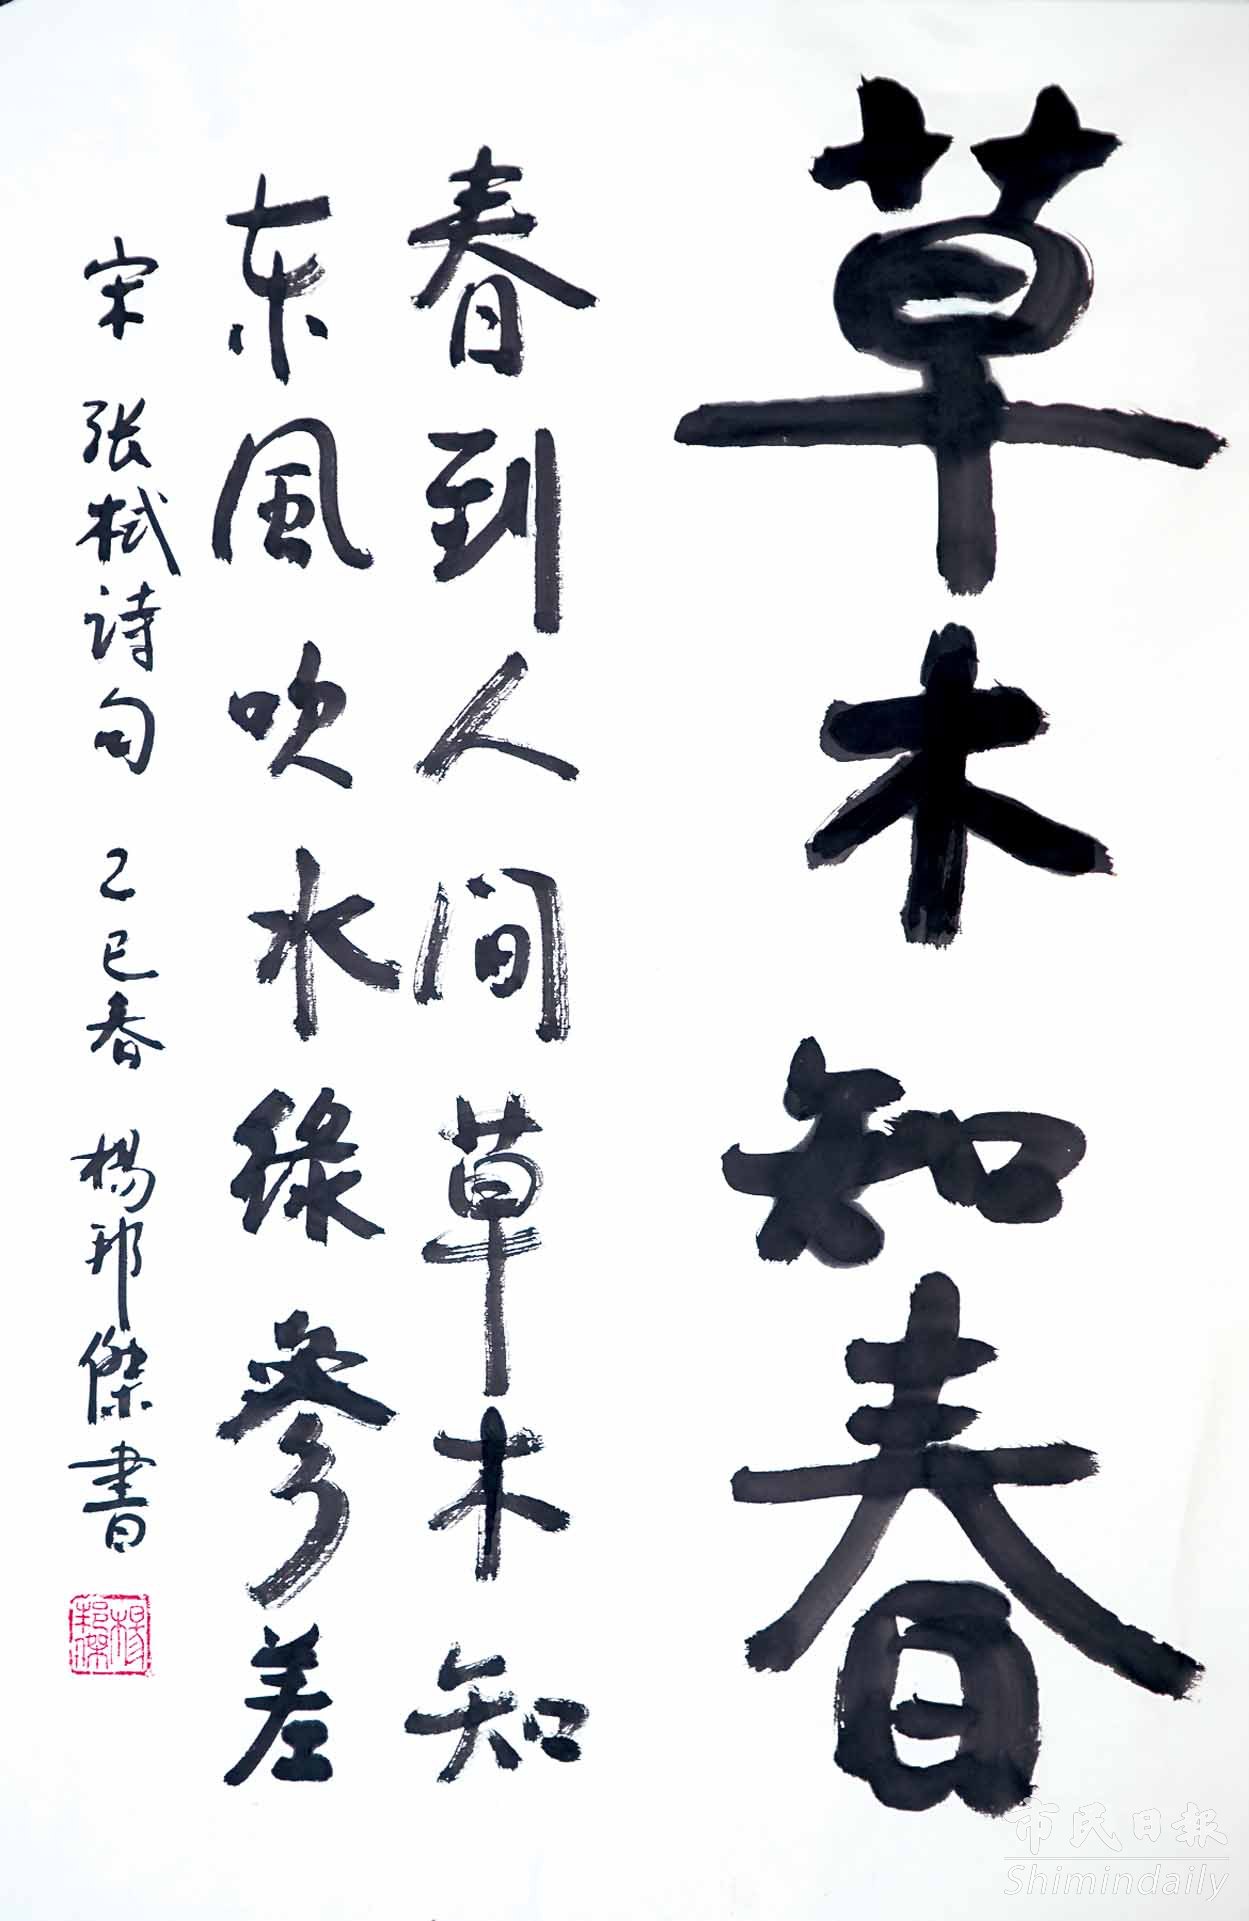 草木知春
春到人间草木知
东風吹水綠參差
宋 张栻诗句 乙巳春 楊邦傑書
楊邦傑
市民日報
Shimindaily